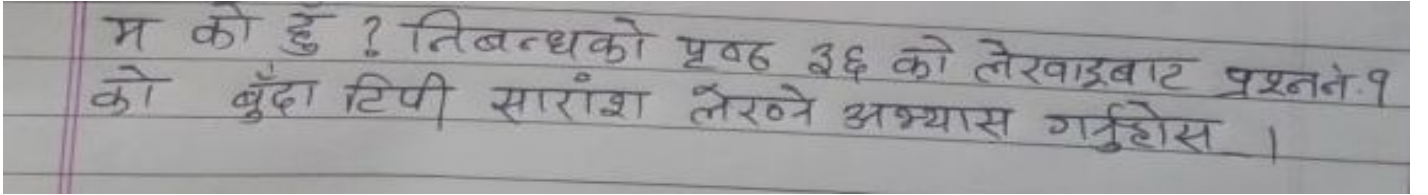 म को हुँ ? निबन्धको पृष्ठ ३६ को लेखाइबाट प्रश्नन.१
को बुँदा टिपी सारांश लेख्ने अभ्यास गर्नुहोस ।